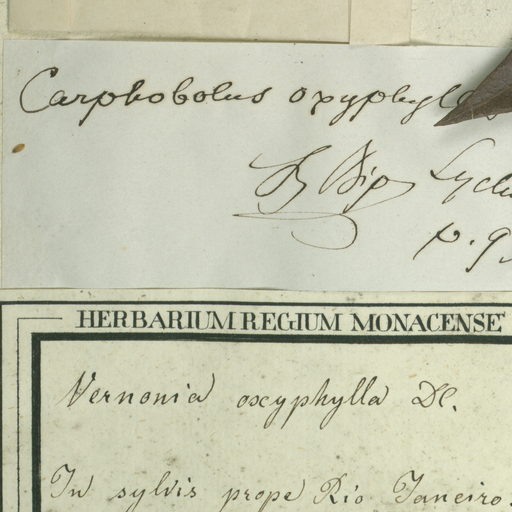 Carphobolus oxyphyll
Sch Bip Lych
p. 9
HERBARIUM REGIUM MONACENSE
Vernonia oxyphylla DC.
In sylvis prope Rio Janeiro.